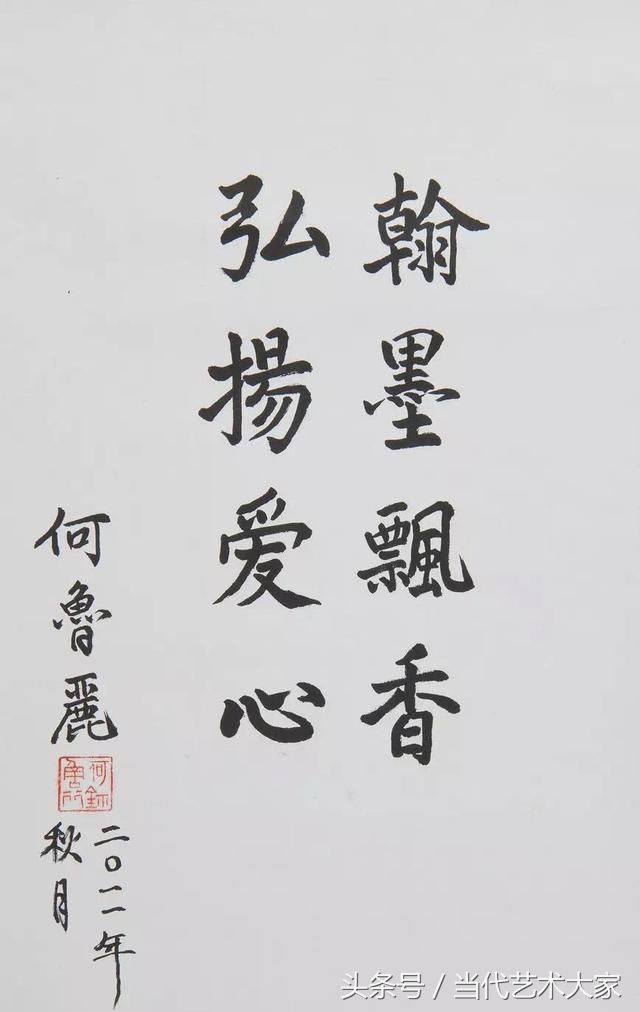 翰墨飄香
弘揚爱心
何魯麗
二〇一一年
秋月
头条号 / 当代艺术大家